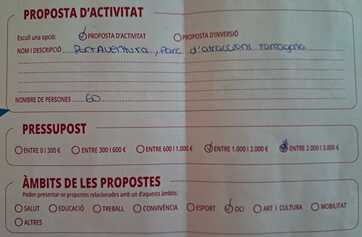 PROPOSTA D'ACTIVITAT
Escull una opció: PROPOSTA D'ACTIVITAT PROPOSTA D'INVERSIÓ
NOM I DESCRIPCIÓ PortAventura, Parc d'atraccions Tarragona
NOMBRE DE PERSONES 60
PRESSUPOST
ENTRE 0 I 300 € ENTRE 300 I 600 € ENTRE 600 I 1.000 € ENTRE 1.000 I 2.000 € ENTRE 2.000 I 3.000 €
ÀMBITS DE LES PROPOSTES
Poden presentar-se propostes relacionades amb un d'aquests àmbits:
SALUT EDUCACIÓ TREBALL CONVIVÈNCIA ESPORT OCI ART I CULTURA MOBILITAT
ALTRES